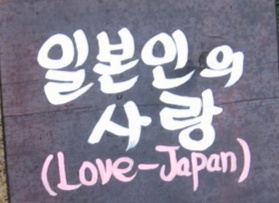 일본인의
사랑
(Love-Japan)